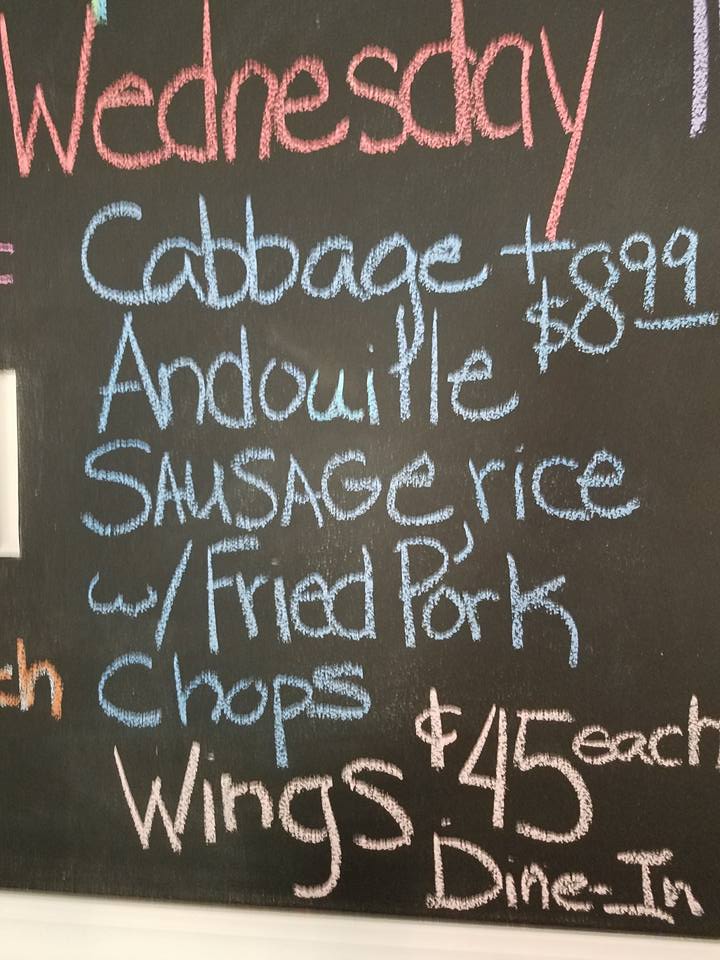 Wednesday
Cabbage +
$8.99
Andouille
SAUSAGE, rice
w/Fried Pork
Chops
Wings ¢45 each
Dine-In
ch